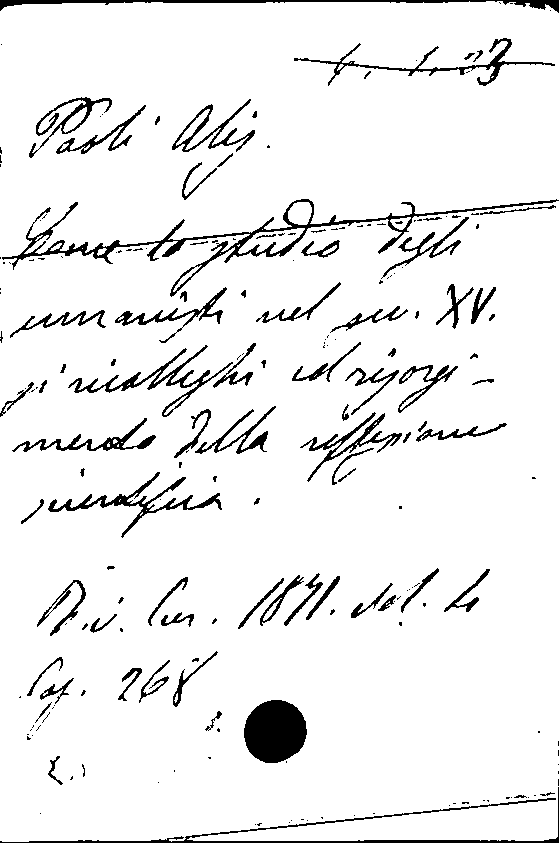 6. 1. 23
Paoli Alis.
Come lo studio degli
umanisti nel sec. XV.
si ricolleghi al risorgi-
mento della riflessione
scientifica.
Riv. Eur. 1871. vol. 4
Pag. 268